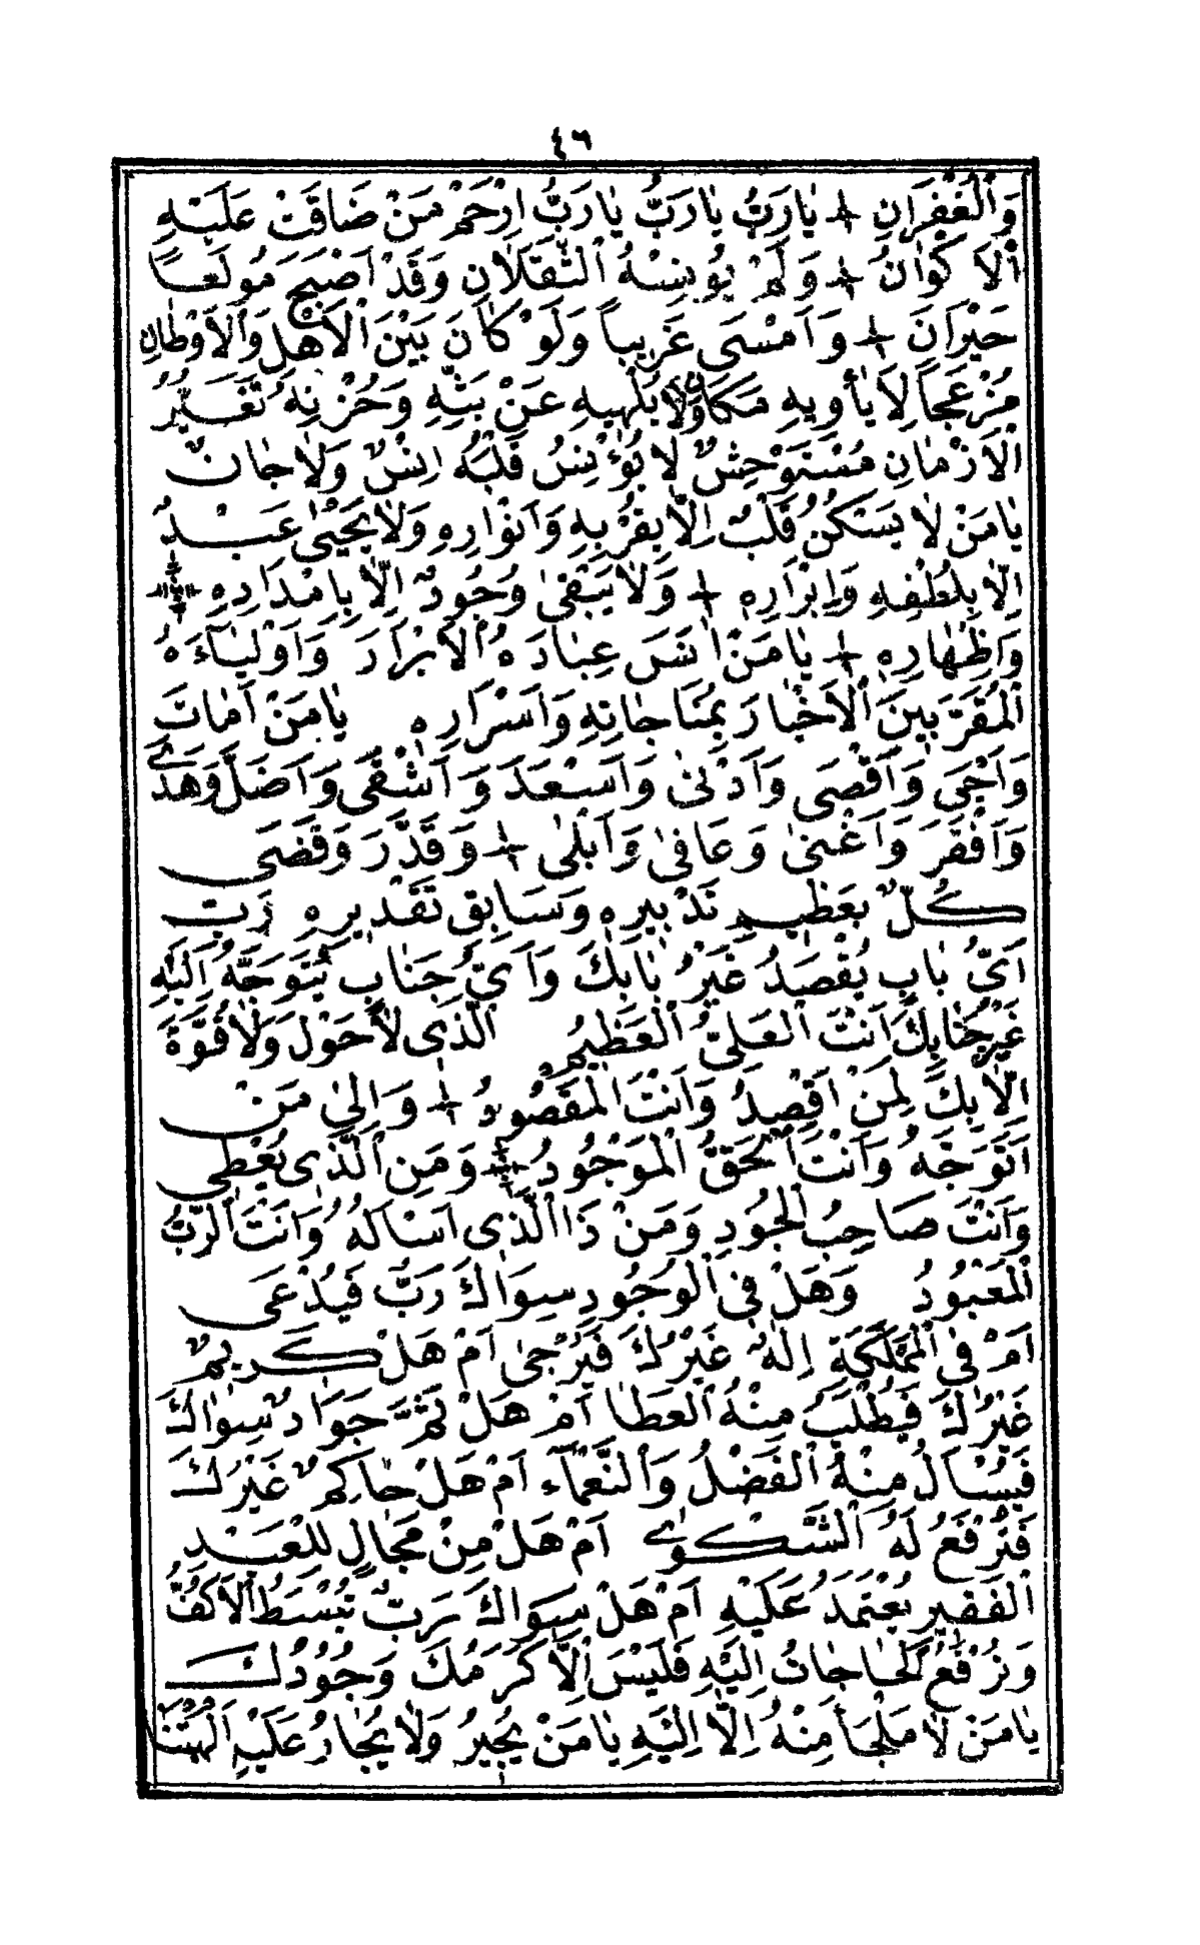 ٤٦
وَالْغُفْرَانِ يَارَبُّ يَارَبُّ يَارَبُّ اِرْحَمْ مَنْ ضَاقَتْ عَلَيْهِ
اَلْاَكْوَانُ وَلَمْ يُونِسْهُ الثَّقَلَانِ وَقَدْ اَصْبَحَ مُولَعًا
حَيْرَانَ وَاَمْسَى غَرِيباً وَلَوْ كَانَ بَيْنَ الْاَهْلِ وَالْاَوْطَانِ
مُزْعَجاً لَا يَأْوِيهِ مَكَانٌ وَلَا يُلْهِيهِ عَنْ بَثِّهِ وَحُزْنِهِ تَغَيُّرُ
الْاَزْمَانِ مُسْتَوْحِشٌ لَا يُؤْنِسُ قَلْبَهُ اِنْسٌ وَلَا جَانٌ
يَامَنْ لَا يَسْكُنُ قَلْبٌ اِلَّا بِقُرْبِهِ وَاَنْوَارِهِ وَلَا يَحْيَى عَبْدٌ
اِلَّا بِلُطْفِهِ وَاِبْرَارِهِ وَلَا يَبْقَى وُجُودٌ اِلَّا بِاِمْدَادِهِ
وَاِظْهَارِهِ يَامَنْ اَنَسَ عِبَادَهُ الْاَبْرَارَ وَاَوْلِيَاءَهُ
الْمُقَرَّبِينَ الْاَخْيَارَ بِمُنَاجَاتِهِ وَاَسْرَارِهِ يَامَنْ اَمَاتَ
وَاَحْيَى وَاَقْصَى وَاَدْنَى وَاَسْعَدَ وَاَشْقَى وَاَضَلَّ وَهَدَى
وَاَفْقَرَ وَاَغْنَى وَعَافَى وَاَبْلَى وَقَدَّرَ وَقَضَى
كُلٌّ بِعَظِيمِ تَدْبِيرِهِ وَسَابِقِ تَقْدِيرِهِ رَبِّ
اَيُّ بَابٍ يُقْصَدُ غَيْرُ بَابِكَ وَاَيُّ جَنَابٍ يُتَوَجَّهُ اِلَيْهِ
غَيْرُ جَنَابِكَ اَنْتَ الْعَلِيُّ الْعَظِيمُ الَّذِى لَا حَوْلَ وَلَا قُوَّةَ
اِلَّا بِكَ لِمَنْ اَقْصِدُ وَاَنْتَ الْمَقْصُودُ وَاِلَى مَنْ
اَتَوَجَّهُ وَاَنْتَ الْحَقُّ الْمَوْجُودُ وَمَنِ الَّذِى يُعْطِى
وَاَنْتَ صَاحِبُ الْجُودِ وَمَنْ ذَا الَّذِى اَسْاَلُهُ وَاَنْتَ الرَّبُّ
الْمَعْبُودُ وَهَلْ فِى الْوُجُودِ سِوَاكَ رَبٌّ فَيُدْعَى
اَمْ فِى الْمَمْلَكَةِ اِلَهٌ غَيْرُكَ فَيُرْجَى اَمْ هَلْ كَرِيمٌ
غَيْرُكَ فَيُطْلَبَ مِنْهُ الْعَطَا اَمْ هَلْ ثَمَّ جَوَادٌ سِوَاكَ
فَيُسْاَلُ مِنْهُ الْفَضْلُ وَالنَّعْمَاء اَمْ هَلْ حَاكِمٌ غَيْرُكَ
فَتُرْفَعُ لَهُ الشَّكْوَى اَمْ هَلْ مِنْ مَجَالٍ لِلْعَبْدِ
الْفَقِيرِ يُعْتَمَدُ عَلَيْهِ اَمْ هَلْ سِوَاكَ رَبٌّ تُبْسَطُ الْاَكُفُّ
وَتُرْفَعُ الْحَاجَاتُ اِلَيْهِ فَلَيْسَ اِلَّا كَرَمُكَ وَجُودُكَ
يَامَنْ لَا مَلْجَأَ مِنْهُ اِلَّا اِلَيْهِ يَامَنْ يُجِيرُ وَلَا يُجَارُ عَلَيْهِ اَلْهَتْنَا